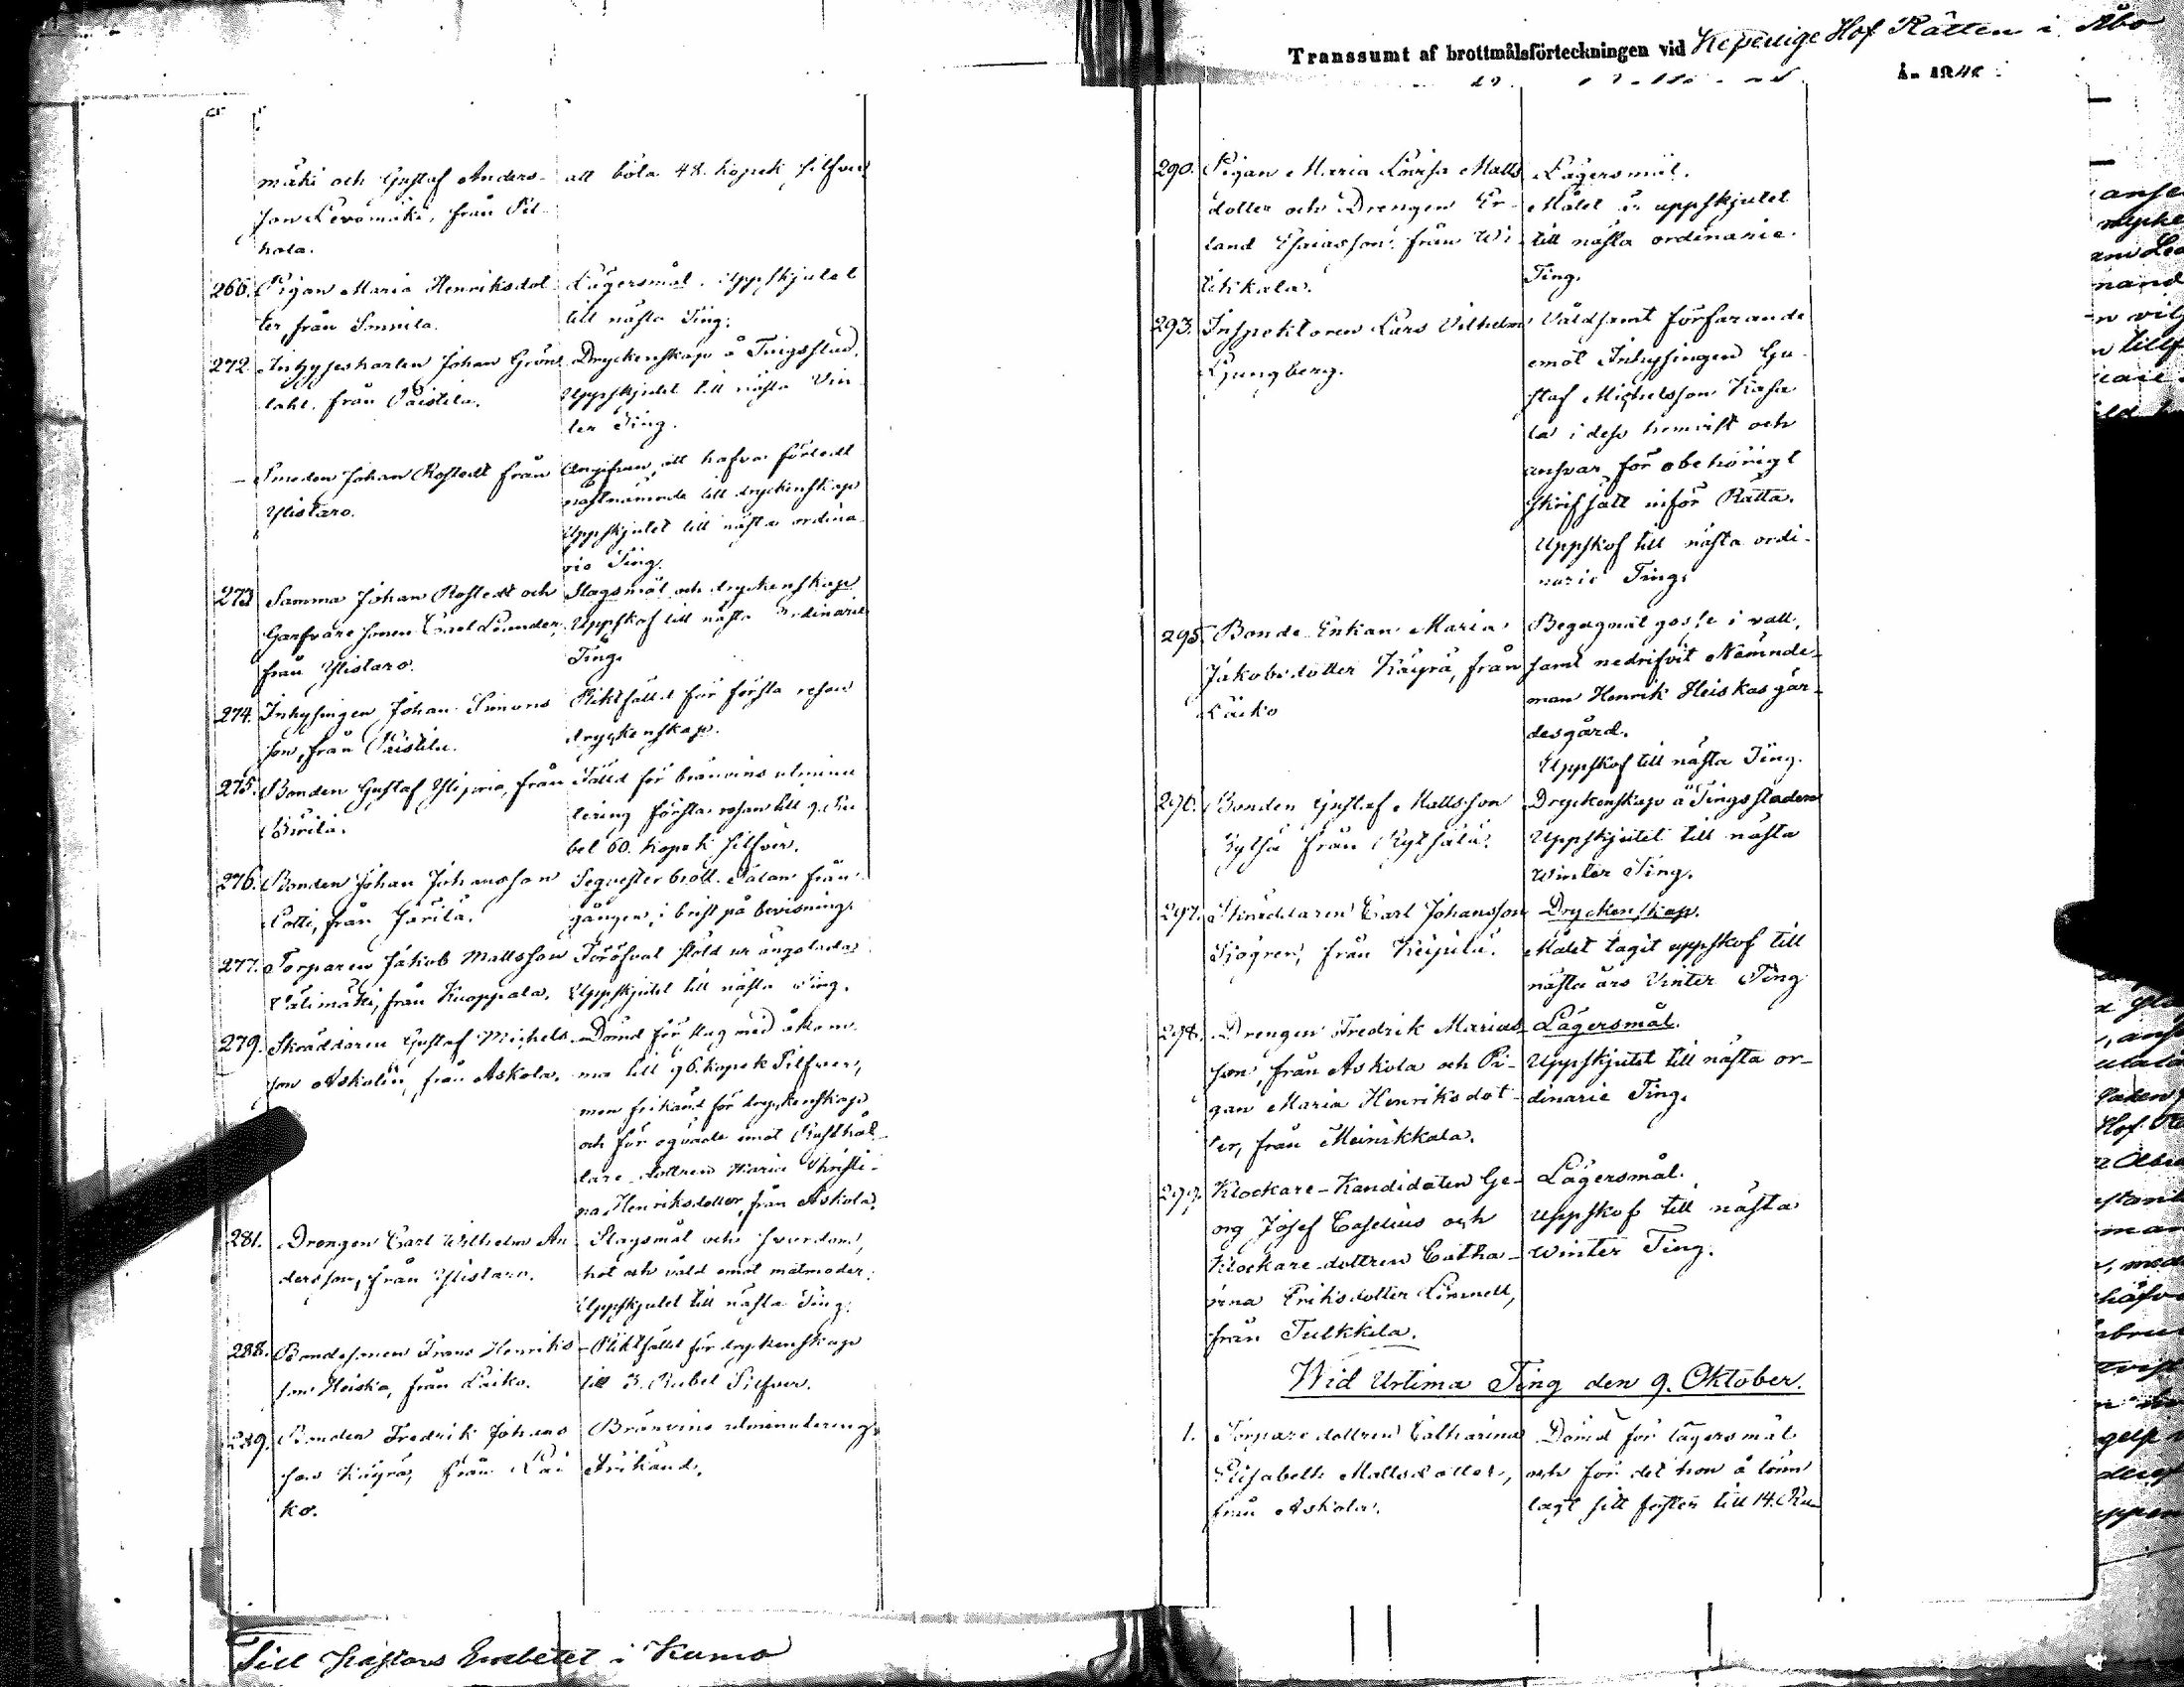 mäki och Gustaf Anders-
son Levomäki, från Pel-
hola.
att böta 48. kopek silfver
266. Pigan Maria Henriksdot
ter, från Sonnila.
Lägersmål. Uppskjutet
till nästa Ting.
272. Inhyseskarlen Johan Grön
dahl. från Paistila.
Dryckenskap å Tingsstad.
Uppskjutet till nästa Vin
ter Ting.
- Smeden Johan Rostedt från
Ylistaro.
Angifven, att hafva förledt
nästnämnda till dryckenskap
Uppskjutet till nästa ordina
rie Ting.
273 Samma Johan Rostedt och
Garfvare sonen Carl Leander,
från Ylistaro.
Slagsmål och dryckenskap
Uppskof till nästa Ordinarie
Ting.
274. Inhysingen Johan Simons
son, från Paistila.
Pliktfälld för första resan
dryckenskap.
275. Bonden Gustaf Ylijoria, från
Fälld för bränvins utminu
tering första resan till 9. Ru
bel 60. kopek silfver.
276. Bonden Johan Johansson
Potti, från Järilä.
Seqvester brott. Talan från
gången, i brist på bevisning.
277. Torparen Jakob Mattsson
Välimäki, från Kuoppala.
Föröfvat stöld ur ängslada
Uppskjutet till nästa Ting.
279. Skräddaren Gustaf Michels
son Askolin, från Askola.
Dömd för slag med åkom
ma till 96. kopek Silfver,
men frikänd för dryckenskap
och för oqväde emot Rusthål
lare dottren Maria Christi-
na Henriksdotter, från Askola.
281. Drengen Carl Wilhelm An
dersson, från Ylistaro.
Slagsmål och svordom,
hot och våld emot matmoder.
Uppskjutet till nästa Ting.
288. Bondesonen Frans Henriks
son Heiska, från Laiko.
Pliktfälld för dryckenskap
till 3. Rubel Silfver.
289. Bonden Fredrik Johans
son Käyrä, från Lai
ko.
Bränvins utminutering.
Frikänd.
Till Häktors Embetet i Kumo
Transsumt af brottmålsförteckningen vid Kejserlige Hof Rätten i Åbo
År 184
290. Pigan Maria Lovisa Matts
dotter och Drengen Er-
land Esaiasson från Wi
tikkala.
Lägersmål.
Målet är uppskjutet
till nästa ordinarie
Ting.
293. Inspektoren Lars Vilhelm
Ljungberg.
Våldsamt förfarande
emot Inhysingen Gu
staf Michelsson Kasa
la i dess hemvist och
ansvar för obehörigt
skrifsätt inför Rätta.
Uppskof till nästa ordi-
narie Ting.
295. Bonde Enkan Maria
Jakobsdotter Käyrä, från
Laiko
Begagnat gosse i vall,
samt nedrifvit Nämnde-
man Henrik Heiskas gär-
desgård.
Uppskof till nästa Ting.
296. Bonden Gustaf Mattsson
Kylsä från Kylsälä.
Dryckenskap å Tingsstaden
Uppskjutet till nästa
Winter Ting.
297. Skräddaren Carl Johansson
Sjögren, från Keipilä.
Dryckenskap.
Målet tagit uppskof till
nästa års Vinter Ting
298. Drengen Fredrik Marias
son, från Askola och Pi-
gan Maria Henriksdot-
ter, från Meinikkala.
Lägersmål.
Uppskjutet till nästa or-
dinarie Ting.
299. Klockare-Kandidaten Ge-
org Josef Caselius och
Klockare-dottren Catha-
rina Eriksdotter Linnell,
från Tulkkila.
Lägersmål.
Uppskof till nästa
Winter Ting.
Wid Urtima Ting den 9. Oktober.
1. Torpare dottren Catharina
Elisabeth Mattsdotter,
från Askola.
Dömd för lägersmål
och för det hon å lönn
lagt sitt foster till 14. Ru